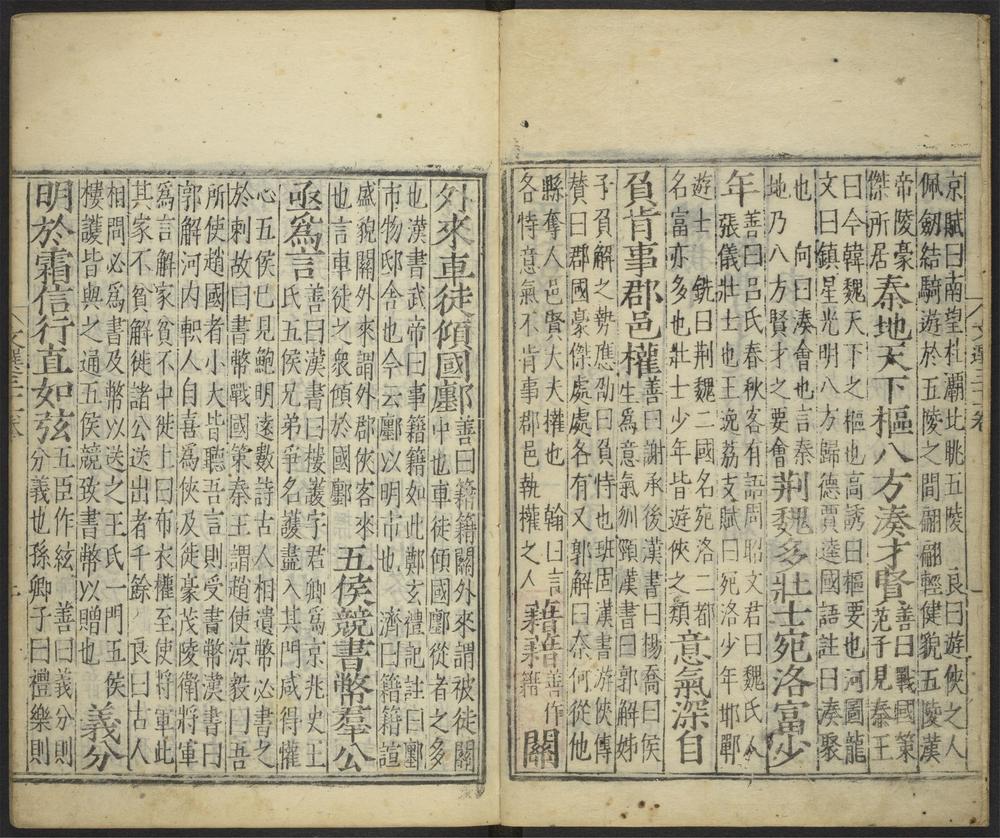 京賦曰南望杜灞北眺五陵 良曰遊俠之人
佩劒結騎遊於五陵之間翩翩輕健貌五陵漢
帝陵豪
傑所居
秦地天下樞八方湊才賢
善曰戰國策
范子見秦王
曰今韓魏天下之樞也高誘曰樞要也河圖龍
文曰鎮星光明八方歸德賈逵國語註曰湊聚
也 向曰湊會也言秦
地乃八方賢才之要會
荆魏多壯士宛洛富少
年
善曰呂氏春秋客有語周昭文君曰魏氏人
張儀壯士也王逸荔支賦曰宛洛少年邯鄲
遊士 銑曰荆魏二國名宛洛二都
名富亦多也壯士少年皆遊俠之類
意氣深自
負肯事郡邑權
善曰謝承後漢書曰揚喬曰侯
生爲意氣刎頸漢書曰郭解姊
子負解之勢應劭曰負恃也班固漢書游俠傳
贊曰郡國豪傑處處各有又郭解曰奈何從他
縣奪人邑賢大夫權也 翰曰言
各恃意氣不肯事郡邑執權之人
籍籍
善作
關
外來車徒傾國鄽
善曰籍籍關外來謂被徒關
中也車徒傾國鄽從者之多
也漢書武帝曰事籍籍如此鄭玄禮記註曰鄽
市物邸舍也今云鄽以明市也 濟曰籍籍諠
盛貌關外來謂外郡俠客來
也言車徒之衆傾於國鄽
五侯競書幣羣公
亟爲言
善曰漢書曰樓護字君卿爲京兆史王
氏五侯兄弟爭名護盡入其門咸得懽
心五侯巳見鮑明遠數詩古人相遺幣必書之
於刺故曰書幣戰國策秦王謂趙使涼毅曰吾
所使趙國者小大皆聽吾言則受書幣漢書曰
郭解河內軹人自喜爲俠及徙豪茂陵衛將軍
爲言解家貧不中徙上曰布衣權至使將軍此
其家不貧解徙諸公送出者千餘 良曰古人
相問必爲書及幣以送之王氏一門五侯
樓護皆與之通五侯競致書幣以贈也
義分
明於霜信行直如弦
五臣作絃 善曰義分則
分義也孫卿子曰禮樂則